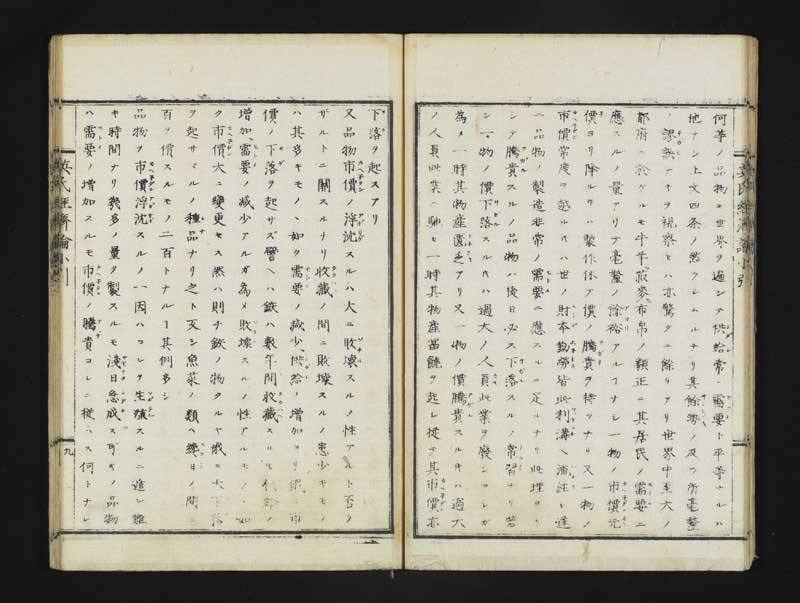 何等ノ品物モ世界ヲ通シテ供給常ニ需要ト平等ナルハ
他ナシ上文四条ノ然ラシムルナリ其餘勢ノ及フ所毫釐
ノ誤謬ナキヲ視察セハ亦驚クニ餘リアリ世界中至大ノ
都府ニ於ケルモ牛羊菽麥布帛ノ類正ニ其居民ノ需要ニ
應スルノ量アリテ毫釐ノ餘裕アルヿナシ一物ノ市價元
價ヨリ降ルキハ製作佗ノ價ノ騰貴ヲ待ツナリ又一物ノ
市價常度ヲ越ルキハ世ノ財本勤勞皆此利溝ヘ滙注シ遂
ニ品物ノ製造非常ノ需要ニ應スルニ足ルナリ此理ヨリ
シテ騰貴スルノ品物ハ後日必ス下落スルノ常習ナリ若
シ一物ノ價下落スルキハ過大ノ人員此業ヲ廢シコレガ
為メ一時其物産匱乏アリ又一物ノ價騰貴スルキハ過大
ノ人員此業ニ馳セ一時其物産富饒ヲ起シ從テ其市價亦
下落ヲ起スアリ
又品物市價ノ浮沈スルハ大ニ敗壊スルノ性アルト否ラ
ザルトニ關スルナリ收藏ノ間ニ敗壊スルノ患少キモノ
ハ其多キモノヽ如ク需要ノ減少供給ノ増加ヨリ俄ニ市
價ノ下落ヲ起サズ譬ヘハ鉄ハ數年間收藏スルモ
増加需要ノ減少アルガ為メ敗壊スルノ性アルモノヽ如
ク市價大ニ變更セス然ハ則チ鉄ノ物タルヤ俄ニ大下落
ヲ起サヾルノ種品ナリ之ニ反シ魚菜ノ類ハ纔日ノ間ニ
百ヲ價スルモノ二百トナルヿ其例多シ
品物ヲ市價浮沈スルノ一因ハコレヲ生殖スルニ遠シ難
キ時間ナリ幾多ノ量ヲ製スルモ淺日急成ス可キノ品物
ハ需要ノ増加スルモ市價ノ騰貴コレニ從ハス何トナレ
英氏經濟論
九